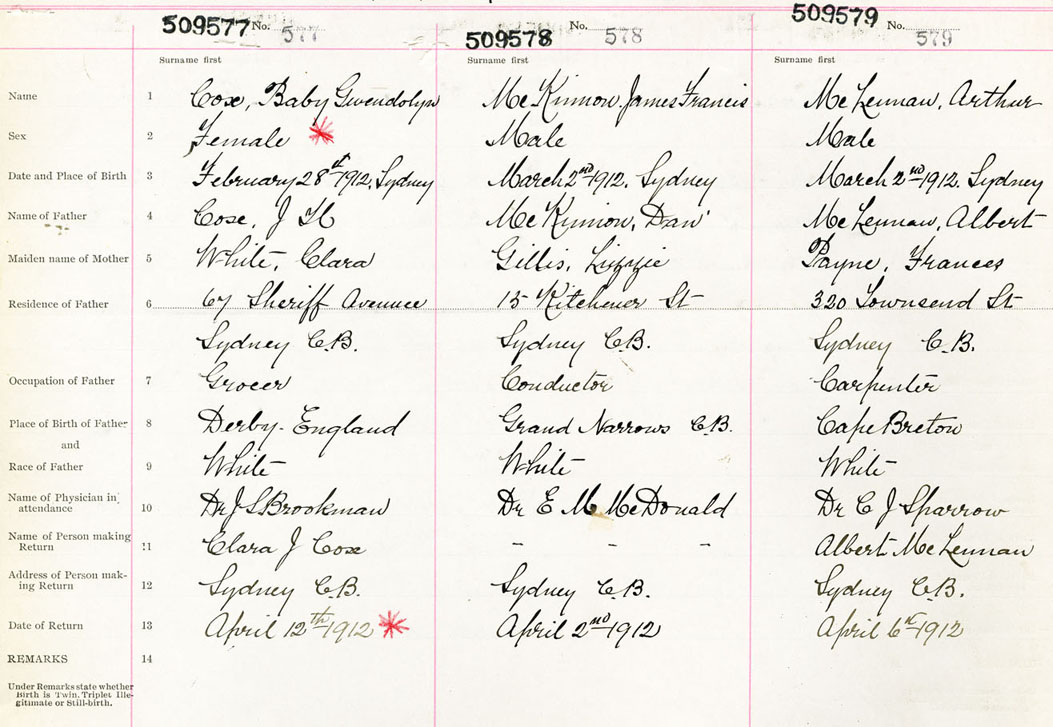 509577 No. 577
509578 No. 578
509579 No. 579
Surname first Surname first Surname first
Name 1 Cose, Baby Gwendolyn McKinnon, James Francis McLennan, Arthur
Sex 2 Female Male Male
Date and Place of Birth 3 February 28th 1912, Sydney March 2nd 1912. Sydney March 2nd 1912. Sydney
Name of Father 4 Cose, J H McKinnon, Dan' McLennan, Albert
Maiden name of Mother 5 White, Clara Gillis, Lizzie Payne, Frances
Residence of Father 6 67 Sheriff Avenue 15 Kitchener St 320 Townsend St
Sydney C.B. Sydney C.B. Sydney C.B.
Occupation of Father 7 Grocer Conductor Carpenter
Place of Birth of Father 8 Derby - England Grand Narrows C.B. Cape Breton
and
Race of Father 9 White White White
Name of Physician in attendance 10 Dr J S Brookman Dr E M McDonald Dr C J Sparrow
Name of Person making Return 11 Clara J Cose - - - Albert McLennan
Address of Person mak-
ing Return 12 Sydney C.B. Sydney C.B. Sydney C.B.
Date of Return 13 April 12th 1912 April 2nd 1912 April 6th 1912
REMARKS 14
Under Remarks state whether
Birth is Twin, Triplet Ille-
gitimate or Still-birth.